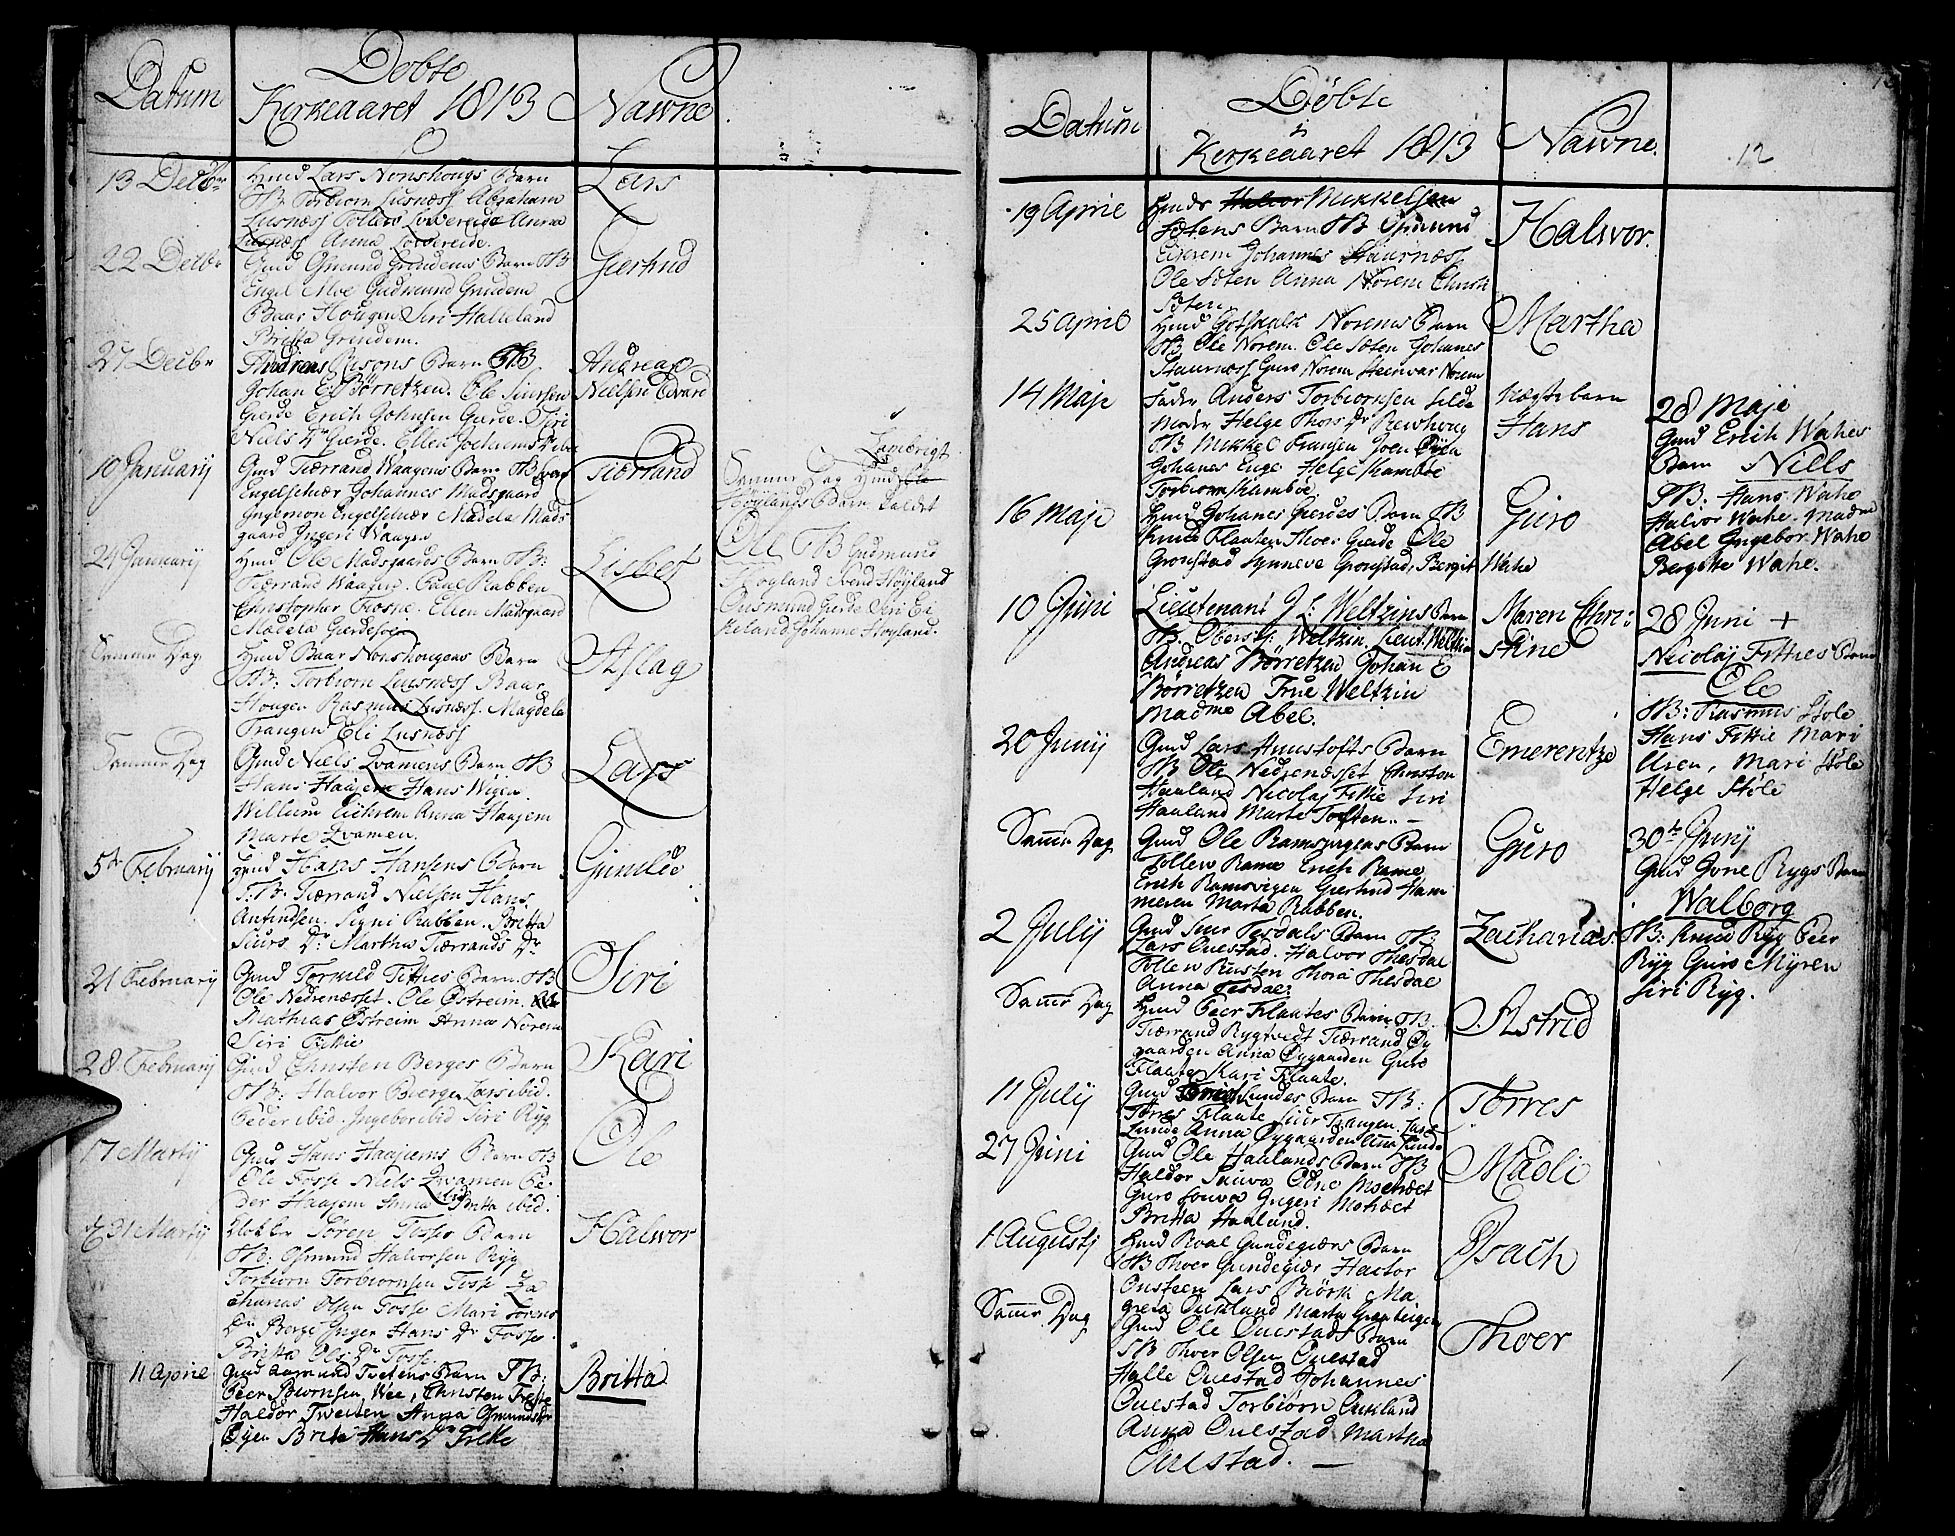 Datum
Døbte
Kirkeaaret 1813
Nawne
13 Decbr
Lars Nonshougs Barn
TB Torbiorn Lusness Abraham
Lusness Tollew Lowereide Anna
Lusness Anna Lowereide.
Lars
22 Decbr
Gmd Gmund Grindems Barn TB
Engel Moe Gudmund Grindem
Baar Hougen Siri Haleland
Britta Grindem.
Giertrud
27 Decbr
Andreas Barn TB
Johan E. Børretzen. Ole Siursen
Gierde Erich Johnsen Gierde. Siri
Niels Dr Gierde. Ellen Jochums Dr
Andreas
Nielsen Edvard
10 Januarij
Gmd Tiærrand Waagens Barn TB
Engelschær Johannes Madsgaard
Ingemon Engelschær Madela Mads
gaard Ingeri Waagen
Tiærrand
24 Januarij
Hmd Ole Madsgaards Barn TB:
Tiærrand Waagen. Rabben
Christopher Ellen Madsgaard
Madela
Lisbet
Samme Dag
Hmd Baar Nonshougens Barn
TB: Torbiorn Lusness Baar
Hougen Rasmus Lusness. Magdela
Trangen Eli Lusness
Aslag
Samme Dag
Gmd Niels Qvamens Barn TB
Hans Haajem Hans Wigen
Willum Eichrem Anna Haajem
Marte Qvamen.
Lars
5te Februarij
Hmd Hans Hansens Barn
T:B: Tiærrand Nielsen Hans
Anfindsen. Signi Rabben. Britta
Siurs Dr Martha Tiærrands Dr
Gunild
21 Februarij
Gmd Torkild Fitties Barn TB
Ole Nedrenæsset. Ole Østreim.
Mathias Østreim Anna Norem
Siri Fittie
Siri
28 Februarij
Gmd Christen Berges Barn
TB: Halvor Bierge, Lars ibid.
Peder ibid. Ingebor ibid Siri Ryg
Kari
17 Martij
Gmd Hans Haajems Barn TB
Ole Fosse Niels Qvamen Pe-
der Haajem Anna ibid Britta ibid.
Ole
31 Martij
Søren Fosses Barn
TB: Osmund Halvorsen Ryg
Torbiorn Torbiornsen Fosse Za
charias Olsen Fosse Mari Sørens
Dr Berge Inger Hans Dr Fosse
Britta Ols Dr Fosse
Halwor
11 Aprile
Gmd Aamund Tvetens Barn TB:
Peer Biornsen Wee, Christen
Haldor Tweiten Anna Osmunds Dr
Øyen Brita Hans Dr
Britta
Lambrigt
Samme Dag Hmd Ole
Høylands Barn kaldet
Ole TB Gudmund
Høgland Svend Høyland
Ousmund Gierde Siri Ei
keland. Johanne Høyland.
Datum
Døbte
i
Kirkeaaret 1813
Nawne.
12
19 Aprile
Hmds Halvor Mikkelsen
Søtens Barn TB Osmund
Johannes Staurness
Ole Søten Anna Norem Christi
Søten
Halwor.
25 Aprile
Hmd Gotskalk Norems Barn
TB Ole Norem. Ole Søten Johanes
Staurness Guro Norem Steinvar Norem
Martha
14 Maje
Fader Anders Torbiornsen Silde
Moder Helge Thors Dr
TB Mikkel Fransen Joen Øyen
Johanes Enge Helge Skamboe
Torbiorn Skamboe.
Uægte barn
Hans
16 Maje
Hmd Johanes Gierdes Barn TB
Knud Flaaten Thoer Gierde Ole
Gronstad Synneve Gronstad, Bergit Wahe
Guro
10 Juni
Lieutenant J: Weltzins Barn
TB. Oberst: Weltzin, Lieut. Weltzin
Andreas Børretzen Johan E
Børretzen Frue Weltzin
Madme Abel.
Maren Chri:
stine
20 Junij
Gmd Lars Hunstofts Barn
TB Ole Nedrenæsset Christen
Haaland Nicolaj Fittie Siri
Haaland Marte Toften. –
Emerentze
Samme Dag
Gmd Ole Ramsvigens Barn
Tollew Rame Erich Rame
Erich Ramsvigen Giertrud Ham
meren Marta Rabben.
Guro
2 Julij
Gmd Siur Tesdals Barn TB
Lars Ouestad. Halvor Thesdal
Tollew Rusten Thora Thesdal
Anna Tesdal
Zacharias
Samme Dag
Hmd Peer Flaates Barn TB:
Tiærrand Rygtvedt Tiærrand Øy
gaarden Anna Øygaarden Guro
Flaate Kari Flaate.
Astrid
11 Julij
Gmd Lundes Barn TB:
Torres Flaate Siur Trangen. Lars
Lunde Anna Øygaarden Anna Lund
Torres
27 Juni
Gmd Ole Haalands Barn TB
Haldor Sauva Odne Motræet
Guro Souva Ingeri Motræet
Britta Haaland.
Madli
1 Augustj
Hmd Roal Gundegiærs Barn
TB Thoer Gundegiær Hactor
Ousteen Lars Biørk Ma
greta Ouckland Marta
Isach
Samme Dag
Gmd Ole Ouestads Barn
TB Thoer Olsen Ouestad
Halle Ouestad Johannes
Ouestad Torbiorn Ouckland
Anna Ouestad Martha
Ouestad. —
Thoer
28 Maje
Gmd Erich Wahes
Barn Niels
TB: Hans Wahe
Halvor Wahe. Madme
Abel Ingebor Wahe
Bergitte Wahe.
28 Juni +
Nicolaj Fitties Barn
Ole
TB: Rasmus Støle
Hans Fittie Mari
Uren, Mari Støle
Helge Støle
30te Junij
Gmd Jone Rygs Barn
Walborg
TB: Knud Ryg Peer
Ryg Guro Myren
Siri Ryg.